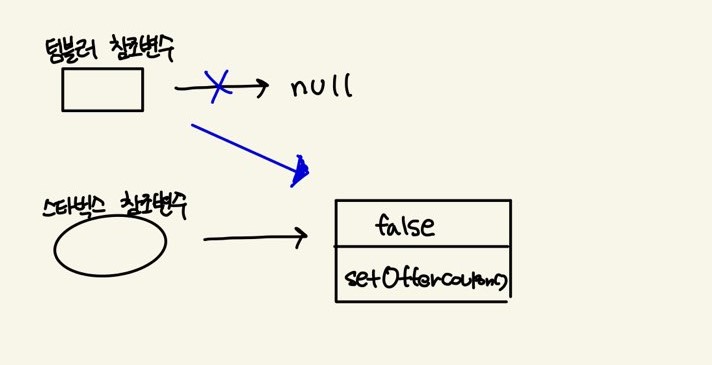 텀블러 참조변수
null
스타벅스 참조변수
false
setOffercoupon()